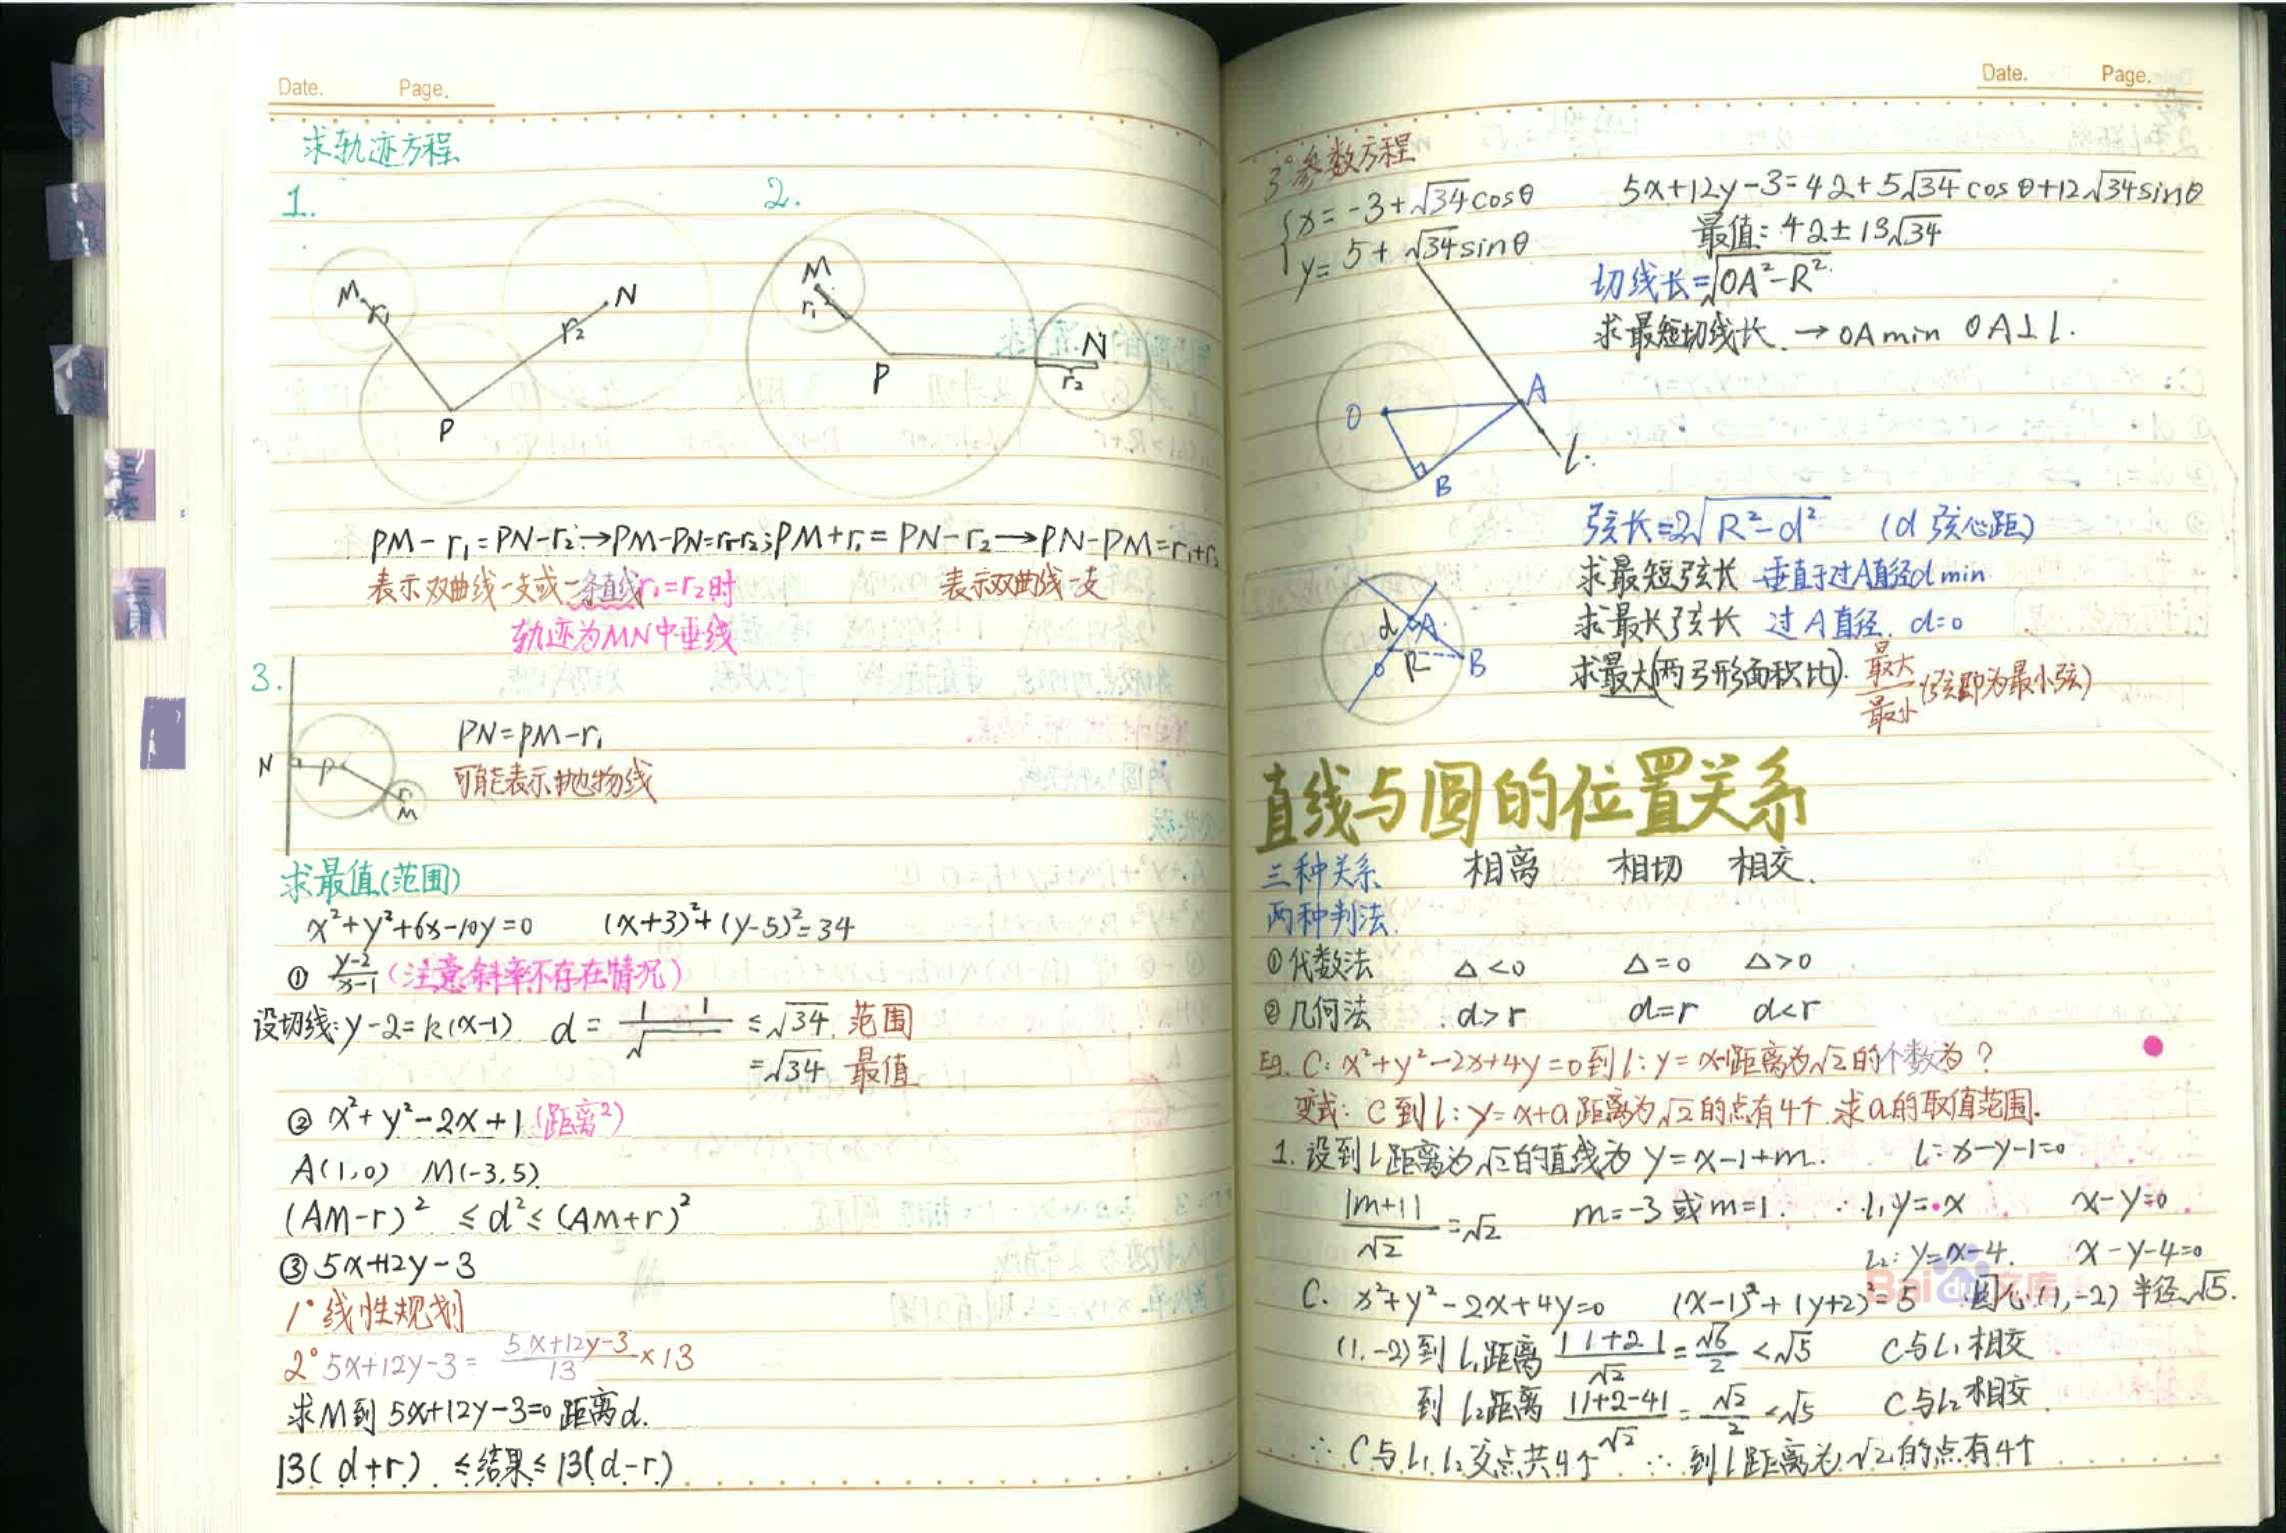 Date. Page.
求轨迹方程
1. 2.
M r₁ P r₂ N
M r₁ P N r₂
PM-r₁=PN-r₂→PM-PN=r₁-r₂; PM+r₁=PN-r₂→PN-PM=r₁+r₂
表示双曲线一支或一条直线r₁=r₂时 表示双曲线一支
轨迹为MN中垂线
3.
N P r₁ M
PN=PM-r₁
可能表示抛物线
求最值(范围)
x²+y²+6x-10y=0 (x+3)²+(y-5)²=34
① y-2/x-1 (注意斜率不存在情况)
设切线:y-2=k(x-1) d=| |/√ ≤√34 范围
=√34 最值
② x²+y²-2x+1 (距离²)
A(1,0) M(-3,5)
(AM-r)² ≤d²≤(AM+r)²
③ 5x+12y-3
1°线性规划
2° 5x+12y-3= 5x+12y-3/13 ×13
求M到5x+12y-3=0距离d.
13(d+r) ≤结果≤13(d-r)
Date. Page.
3°参数方程
{x=-3+√34cosθ 5x+12y-3=42+5√34cosθ+12√34sinθ
y=5+√34sinθ 最值:42±13√34
切线长=√OA²-R²
求最短切线长 → OAmin OA⊥l.
O A B l
弦长=2√R²-d² (d 弦心距)
求最短弦长 垂直于过A直径dmin
求最长弦长 过A直径. d=0
求最大(两弓形面积比). 最大/最小 (弦即为最小弦)
d A O R B
直线与圆的位置关系
三种关系 相离 相切 相交.
两种判法.
①代数法 Δ<0 Δ=0 Δ>0
②几何法 d>r d=r d<r
C:x²+y²-2x+4y=0到l:y=x-1距离为√2的个数为?
变式: C到l:y=x+a距离为√2的点有4个.求a的取值范围.
1.设到l距离为√2的直线为y=x-1+m. l:x-y-1=0
|m+1|/√2=√2 m=-3或m=1. ∴l₁y=x x-y=0
l₂:y=x-4. x-y-4=0
C. x²+y²-2x+4y=0 (x-1)²+(y+2)²=5 圆心(1,-2)半径√5.
(1,-2)到l₁距离 |1+2|/√2=√6/2<√5 C与l₁相交
到l₂距离 |1+2-4|/√2=√2/2<√5 C与l₂相交.
∴C与l₁.l₂交点共4个 ∴到l距离为√2的点有4个
Baidu文库